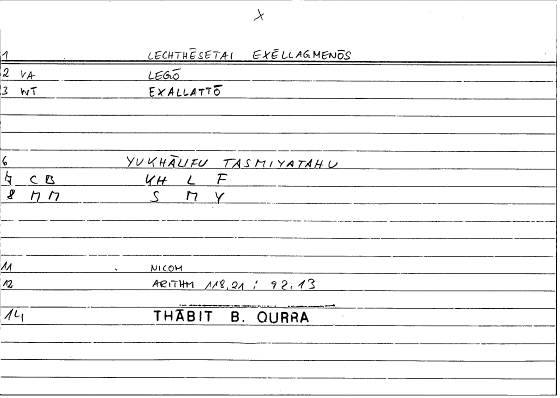 X
1 LECHTHĒSETAI EXĒLLAGMENŌS
2 VA LEGŌ
3 WT EXALLATTŌ
6 YUKHĀLIFU TASMIYATAHU
7 CB KH L F
8 MM S M Y
11 NICOM
12 ARITHM 118,21 : 92,13
14 THĀBIT B. QURRA